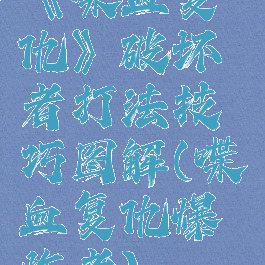 《喋血复
仇》破坏
者打法技
巧图解(喋
血复仇爆